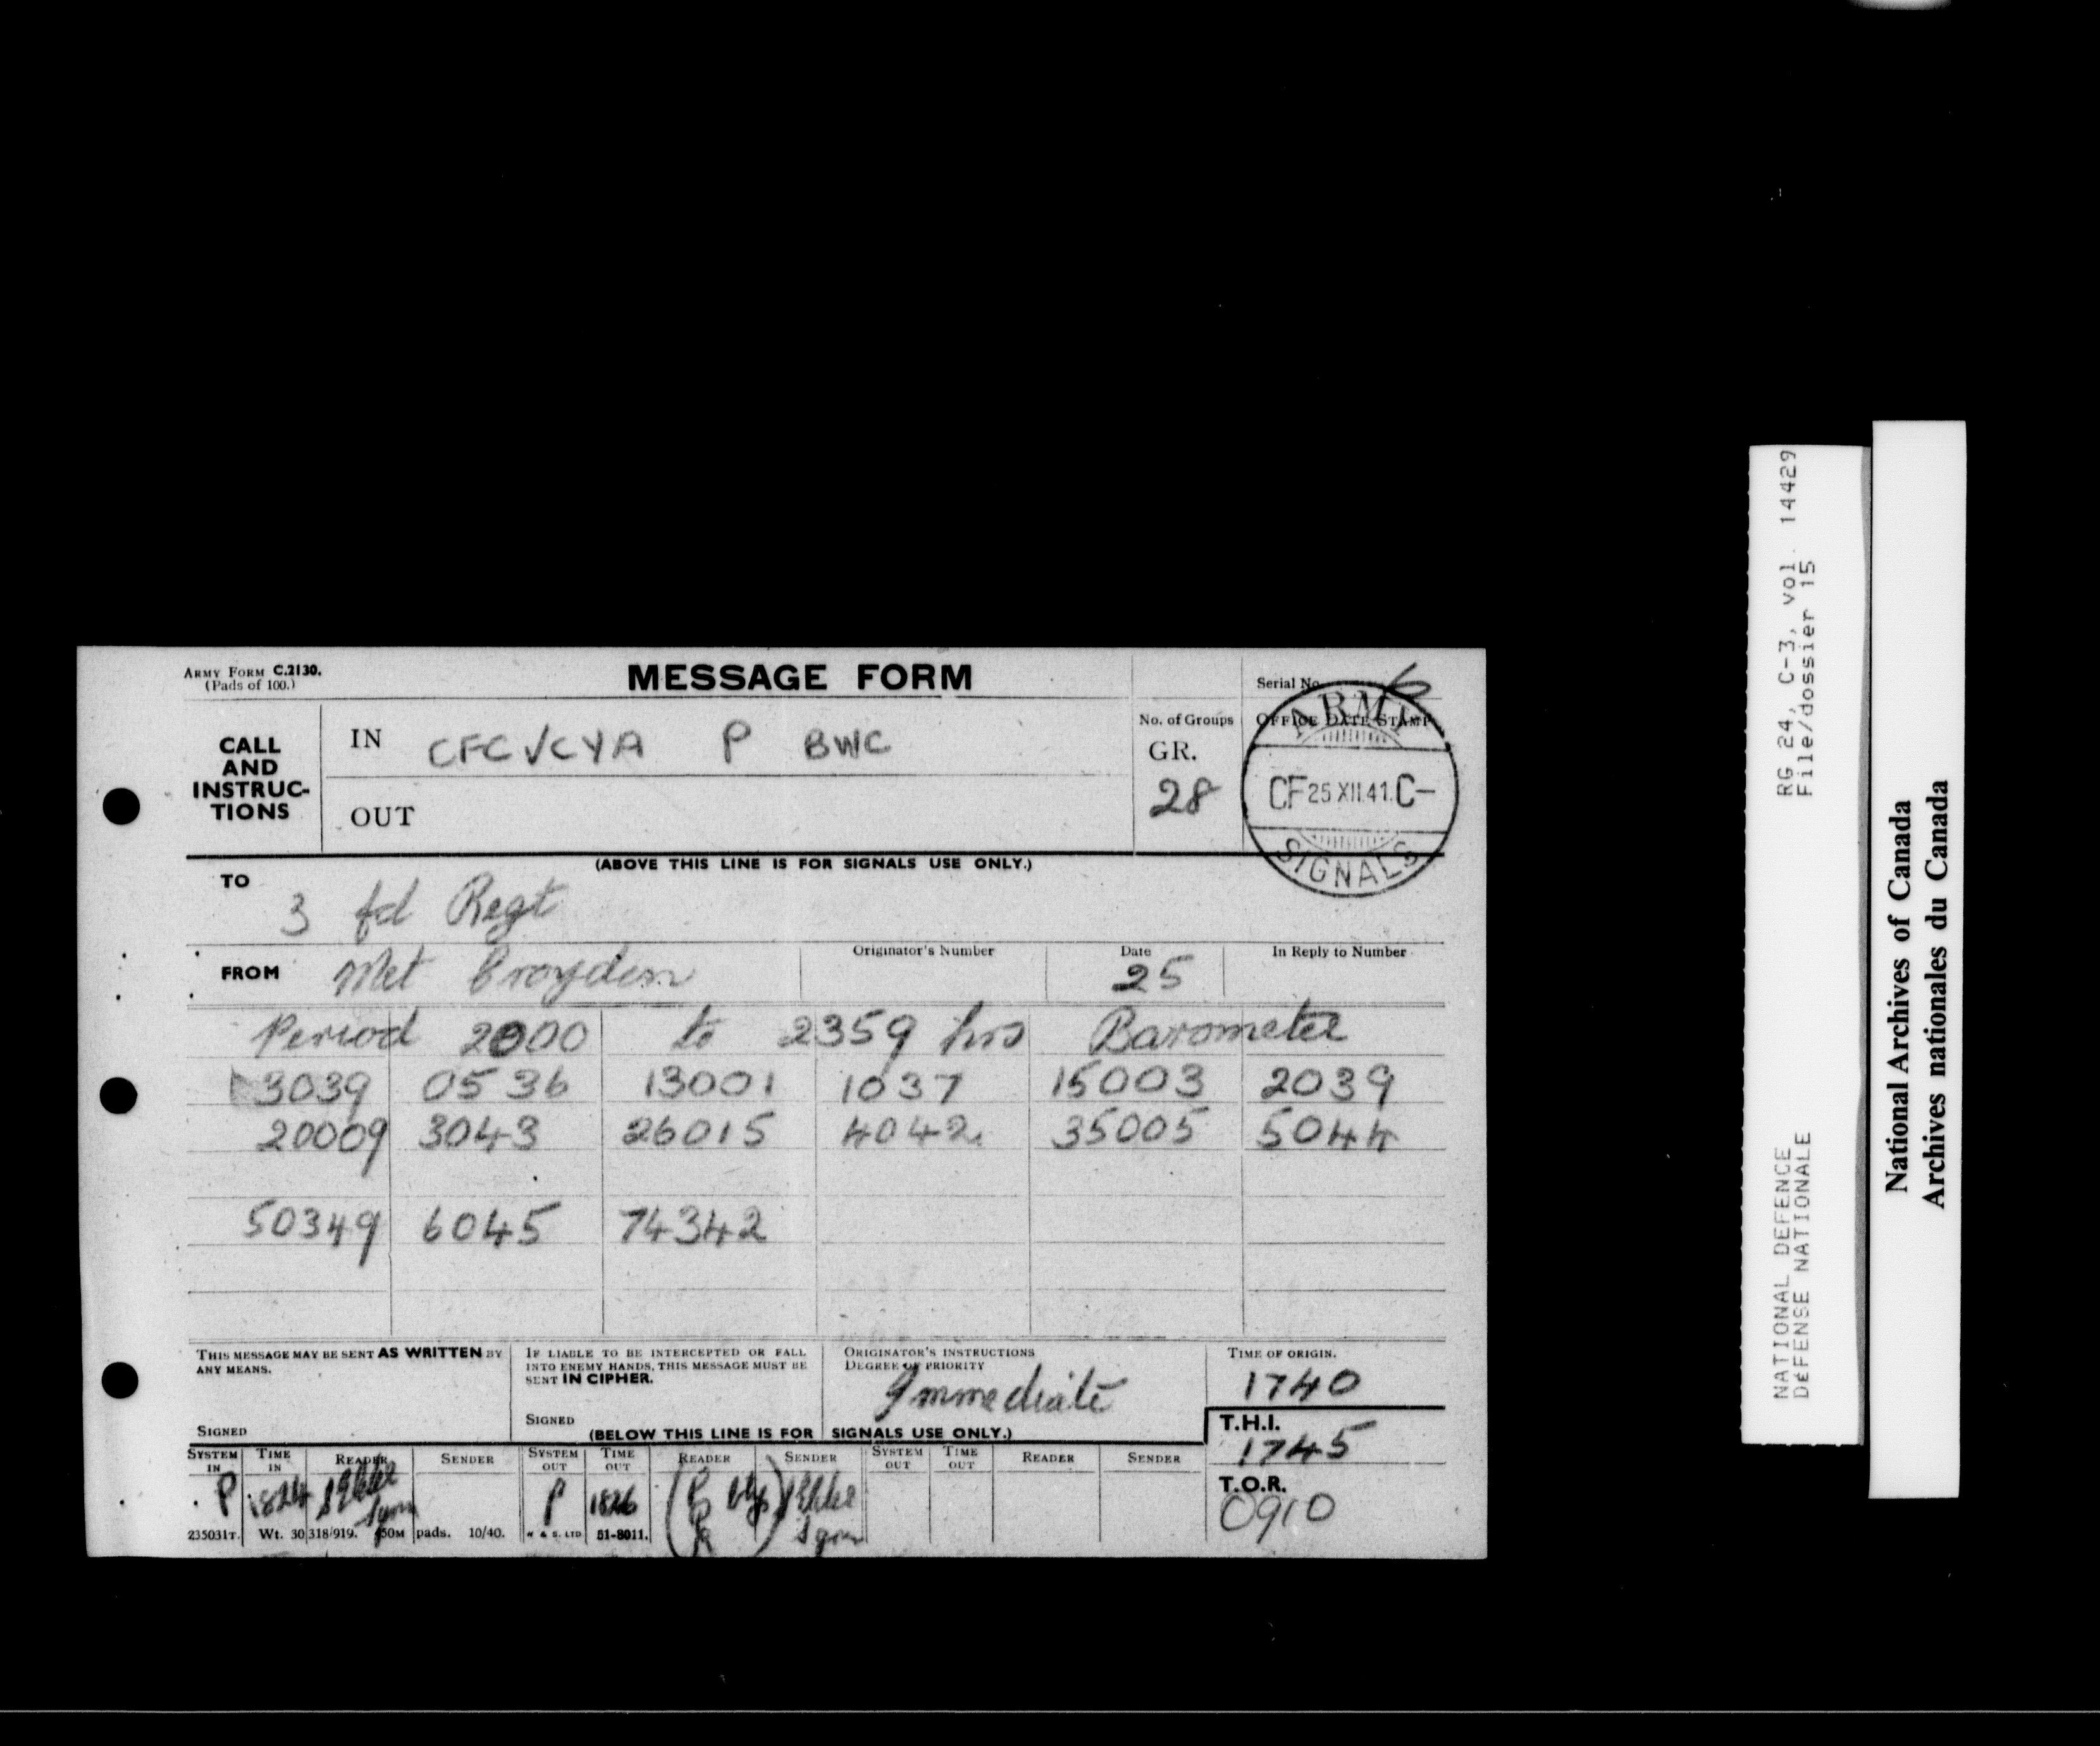 ARMY FORM C.2130.
(Pads of 100.)
MESSAGE FORM
Serial No. 6
CALL AND INSTRUC-TIONS
IN CFC V CYA P BWC
OUT
No. of Groups
GR.
28
OFFICE DATE STAMP
ARMY
CF 25 XII.41. C-
SIGNALS
(ABOVE THIS LINE IS FOR SIGNALS USE ONLY.)
TO
3 fd Regt
FROM Met Croydon
Originator's Number
Date
25
In Reply to Number
Period 2000 to 2359 hrs Barometer
3039 0536 13001 1037 15003 2039
20009 3043 26015 4042 35005 5044
50349 6045 74342
THIS MESSAGE MAY BE SENT AS WRITTEN BY
ANY MEANS.
SIGNED
IF LIABLE TO BE INTERCEPTED OR FALL
INTO ENEMY HANDS, THIS MESSAGE MUST BE
SENT IN CIPHER.
SIGNED
ORIGINATOR'S INSTRUCTIONS
DEGREE OF PRIORITY
Immediate
TIME OF ORIGIN.
1740
T.H.I.
1745
T.O.R.
0910
(BELOW THIS LINE IS FOR SIGNALS USE ONLY.)
SYSTEM IN TIME IN READER SENDER SYSTEM OUT TIME OUT READER SENDER SYSTEM OUT TIME OUT READER SENDER
P 1824 P 1826
235031T. Wt. 30318/919. 450M pads. 10/40. H & S. LTD 51-8011.
RG 24, C-3, vol. 14429
File/dossier 15
NATIONAL DEFENCE
DÉFENSE NATIONALE
National Archives of Canada
Archives nationales du Canada